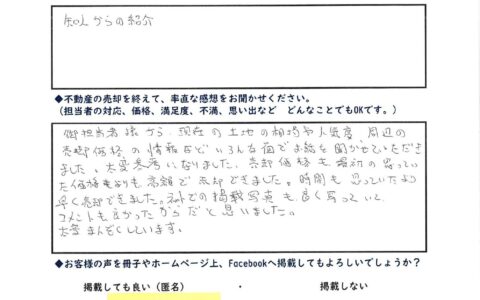 知人からの紹介
◆不動産の売却を終えて、率直な感想をお聞かせください。
（担当者の対応、価格、満足度、不満、思い出など　どんなことでもOKです。）
御担当者様から、現在の土地の相場や人気度、周辺の
売却価格の情報などいろんな面でお話を聞かせていただき
ました。大変参考になりました。売却価格も最初の思ってい
た価格よりも高額で売却できました。時間も思っていたより
早く売却できました。ネットでの掲載写真も良く写っていて
コメントも良かったからだと思いました。
大変まんぞくしています。
◆お客様の声を冊子やホームページ上、Facebookへ掲載してもよろしいでしょうか？
掲載しても良い（匿名）　・　掲載しない